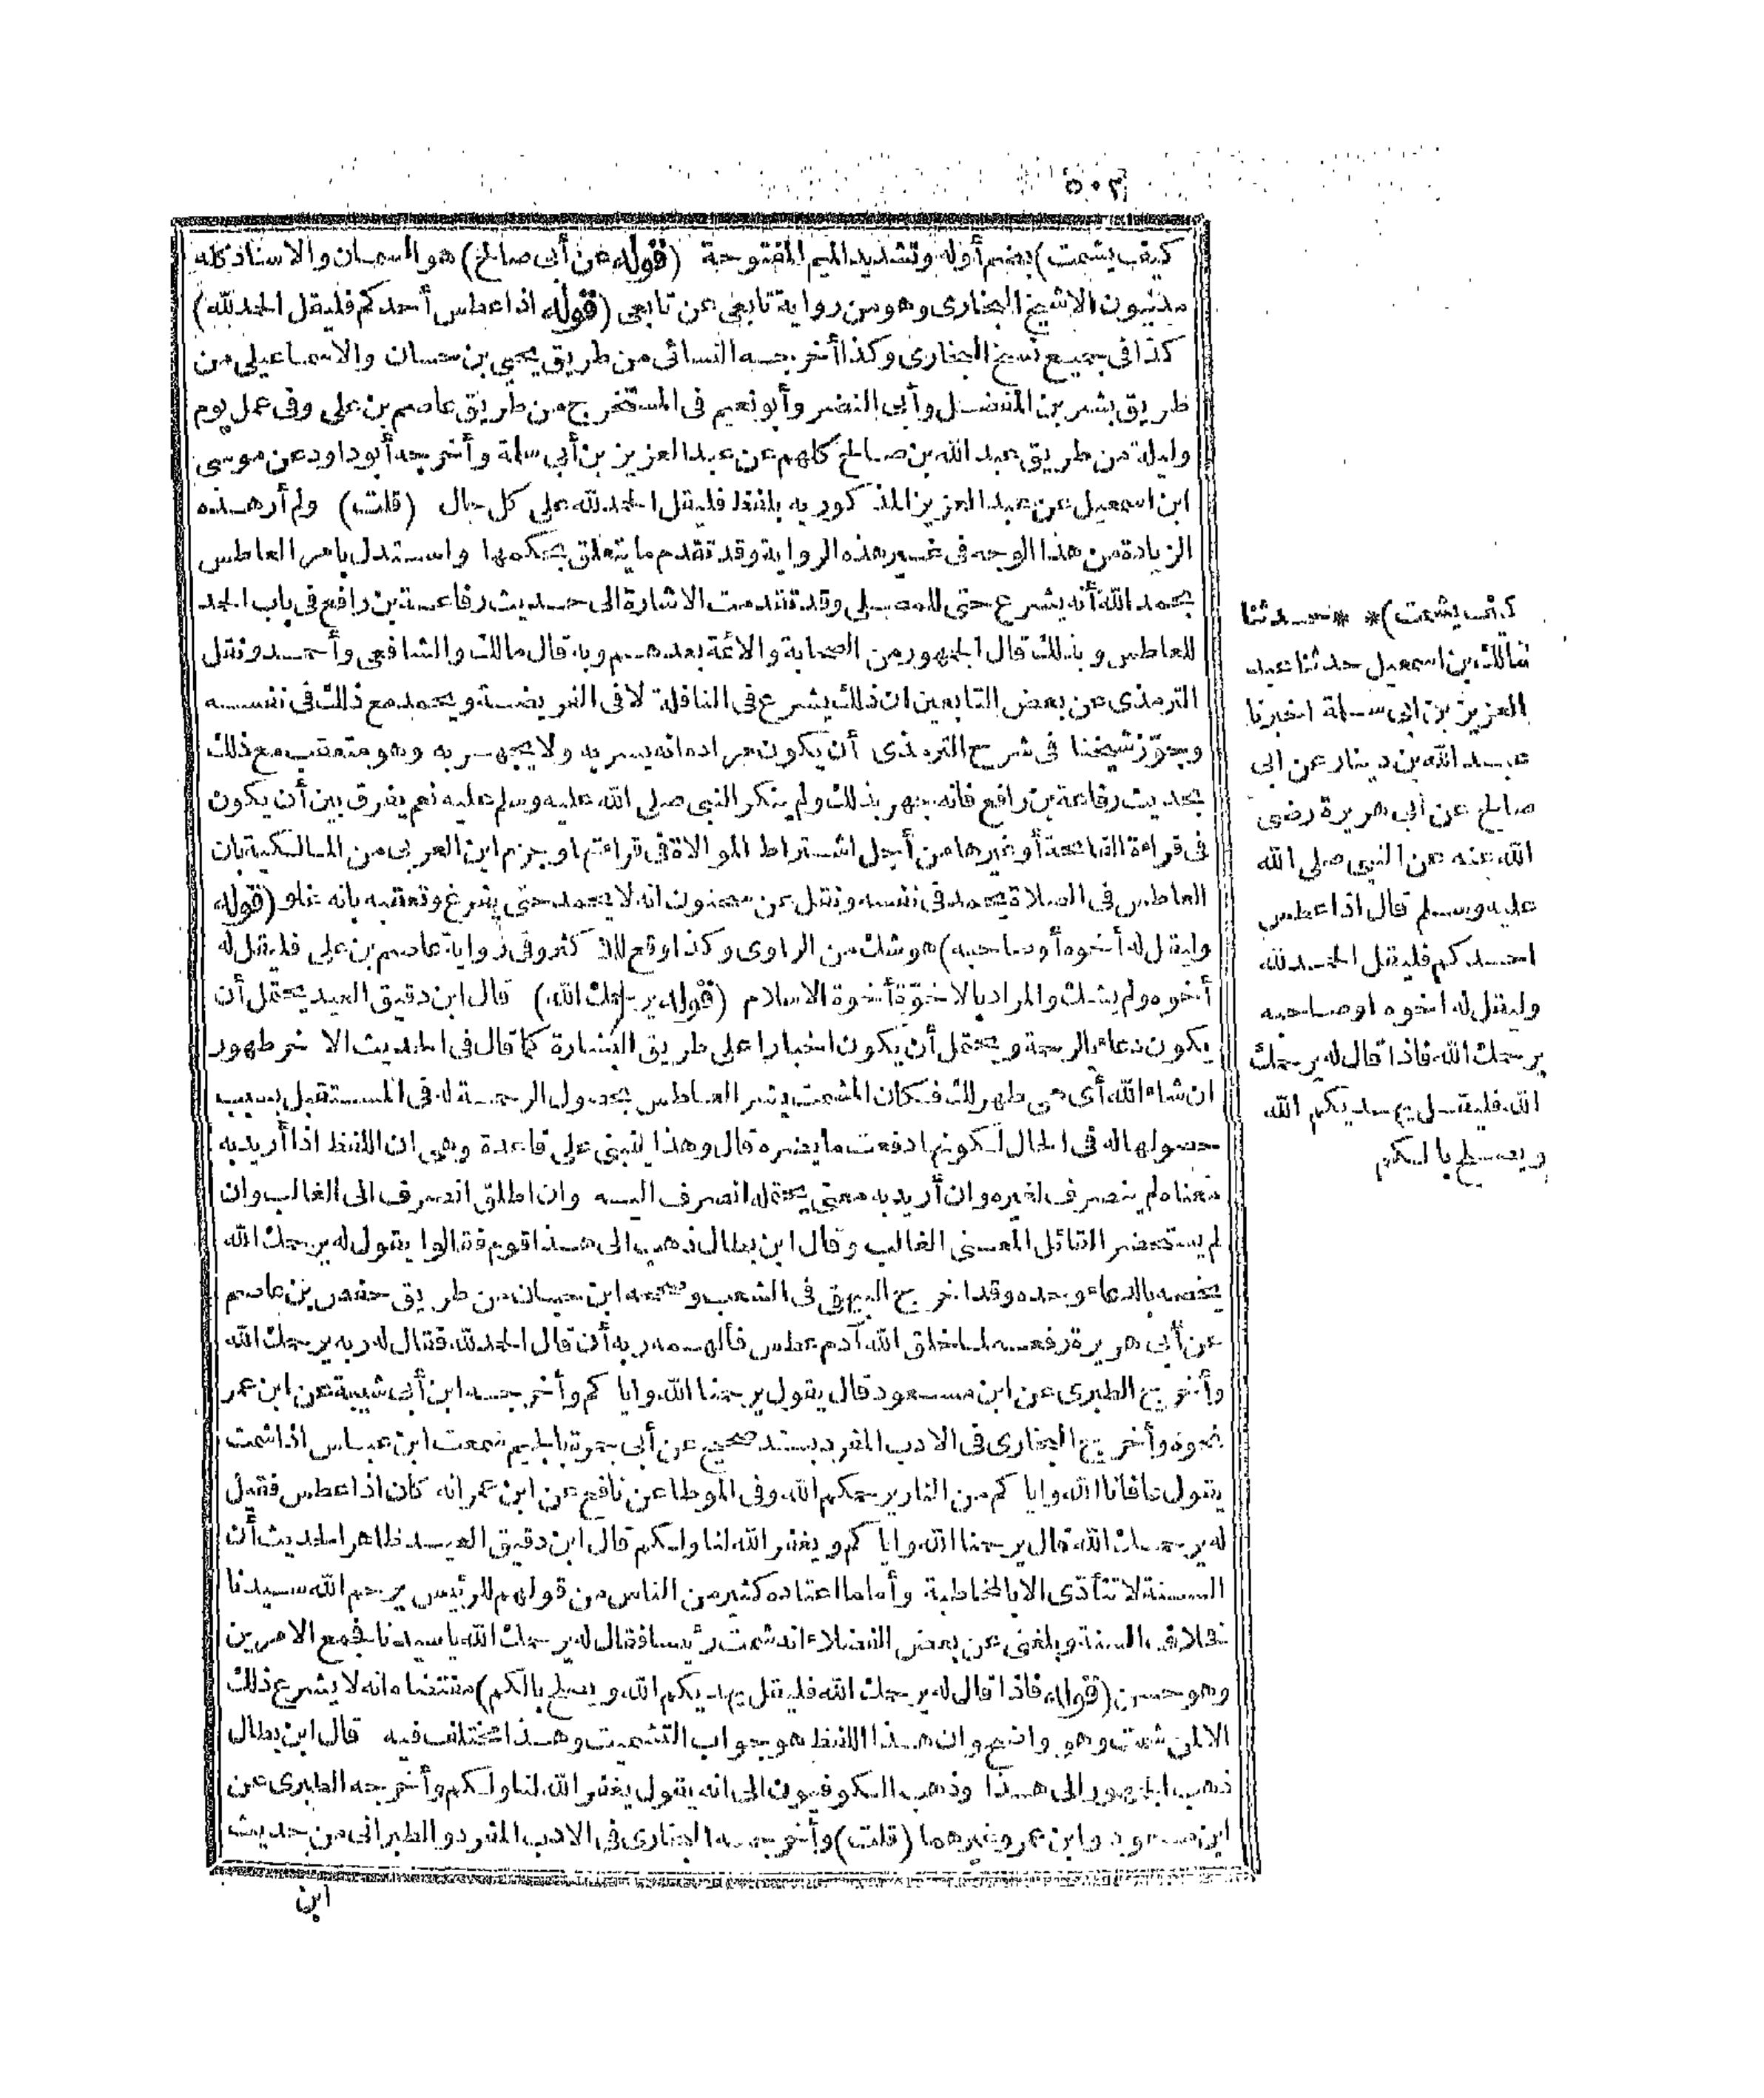 ٥٠٢
كيف يشمت) بضم أوله وتشديد الميم المفتوحة (قوله عن أبي صالح) هو السمان والاسناد كله
مدنيون الا شيخ البخاري وهو من رواية تابعي عن تابعي (قوله اذا عطس أحدكم فليقل الحمد لله)
كذا في جميع نسخ البخاري وكذا أخرجه النسائي من طريق يحيى بن حسان والاسماعيلي من
طريق بشر بن المفضل وأبي النضر وأبو نعيم في المستخرج من طريق عاصم بن علي وفي عمل يوم
وليلة من طريق عبد الله بن صالح كلهم عن عبد العزيز بن أبي سلمة وأخرجه أبو داود عن موسى
ابن اسمعيل عن عبد العزيز المذكور به بلفظ فليقل الحمد لله على كل حال (قلت) ولم أر هذه
الزيادة من هذا الوجه في غير هذه الرواية وقد تقدم ما يتعلق بحكمها واستدل بامر العاطس
بحمد الله أنه يشرع حتى للمصلي وقد تقدمت الاشارة الى حديث رفاعة بن رافع في باب الحمد
للعاطس وبذلك قال الجمهور من الصحابة والائمة بعدهم وبه قال مالك والشافعي وأحمد ونقل
الترمذي عن بعض التابعين ان ذلك يشرع في النافلة لا في الفريضة ويحمد مع ذلك في نفسه
وجوّز شيخنا في شرح الترمذي أن يكون مراده انه يسر به ولا يجهر به وهو متعقب مع ذلك
بحديث رفاعة بن رافع فانه جهر بذلك ولم ينكر النبي صلى الله عليه وسلم عليه نعم يفرق بين أن يكون
في قراءة الفاتحة أو غيرها من أجل اشتراط الموالاة في قراءتها وجزم ابن العربي من المالكية بان
العاطس في الصلاة يحمد في نفسه ونقل عن سحنون انه لا يحمد حتى يفرغ وتعقبه بانه غلو (قوله
وليقل له أخوه أو صاحبه) هو شك من الراوي وكذا وقع للاكثر وفي رواية عاصم بن علي فليقل له
أخوه ولم يشك والمراد بالاخوّة أخوة الاسلام (قوله يرحمك الله) قال ابن دقيق العيد يحتمل أن
يكون دعاء بالرحمة ويحتمل أن يكون اخبارا على طريق البشارة كما قال في الحديث الآخر طهور
ان شاء الله أي هي طهر لك فكان المشمت بشر العاطس بحصول الرحمة له في المستقبل بسبب
حصولها له في الحال لكونها دفعت ما يضره قال وهذا ينبني على قاعدة وهي ان اللفظ اذا أريد به
معناه لم ينصرف لغيره وان أريد به معنى يحتمله انصرف اليه وان اطلق انصرف الى الغالب وان
لم يستحضر القائل المعنى الغالب وقال ابن بطال ذهب الى هذا قوم فقالوا يقول له يرحمك الله
يخصه بالدعاء وحده وقد اخرج البيهقي في الشعب وصححه ابن حبان من طريق حفص بن عاصم
عن أبي هريرة رفعه لما خلق الله آدم عطس فألهمه ربه أن قال الحمد لله فقال له ربه يرحمك الله
وأخرج الطبري عن ابن مسعود قال يقول يرحمنا الله واياكم وأخرجه ابن أبي شيبة عن ابن عمر
نحوه وأخرج البخاري في الادب المفرد بسند صحيح عن أبي جمرة بالجيم سمعت ابن عباس اذا شمت
يقول عافانا الله واياكم من النار يرحمكم الله وفي الموطا عن نافع عن ابن عمر انه كان اذا عطس فقيل
له يرحمك الله قال يرحمنا الله واياكم ويغفر الله لنا ولكم قال ابن دقيق العيد ظاهر الحديث أن
السنة لا تتأدّى الا بالمخاطبة وأما ما اعتاده كثير من الناس من قولهم للرئيس يرحم الله سيدنا
فخلاف السنة وبلغني عن بعض الفضلاء انه شمت رئيسا فقال له يرحمك الله يا سيدنا فجمع الامرين
وهو حسن (قوله فاذا قال له يرحمك الله فليقل يهديكم الله ويصلح بالكم) مقتضاه انه لا يشرع ذلك
الا لمن شمت وهو واضح وان هذا اللفظ هو جواب التشميت وهذا مختلف فيه قال ابن بطال
ذهب الجمهور الى هذا وذهب الكوفيون الى انه يقول يغفر الله لنا ولكم وأخرجه الطبري عن
ابن مسعود وابن عمر وغيرهما (قلت) وأخرجه البخاري في الادب المفرد والطبراني من حديث
ابن
كيف يشمت)* *حدثنا
مالك بن اسمعيل حدثنا عبد
العزيز بن ابي سلمة اخبرنا
عبد الله بن دينار عن ابي
صالح عن أبي هريرة رضي
الله عنه عن النبي صلى الله
عليه وسلم قال اذا عطس
احدكم فليقل الحمد لله
وليقل له اخوه او صاحبه
يرحمك الله فاذا قال له يرحمك
الله فليقل يهديكم الله
ويصلح بالكم